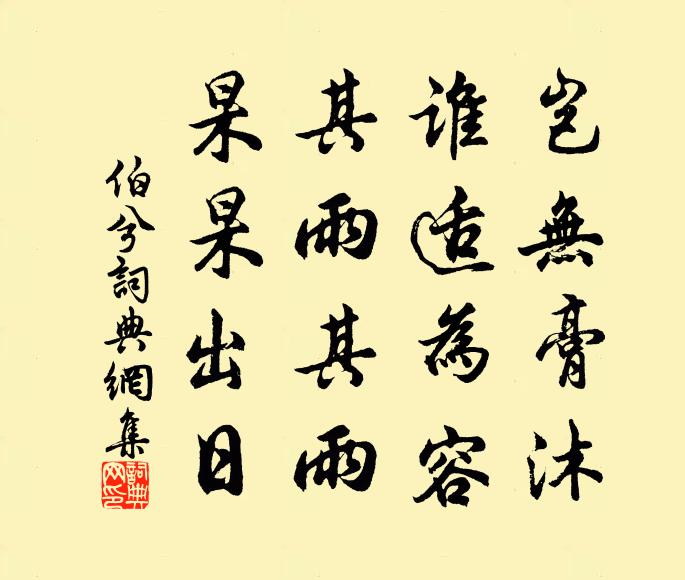 岂無膏沐
誰适為容
其雨其雨
杲杲出日
伯兮詞典網集
詞典网印